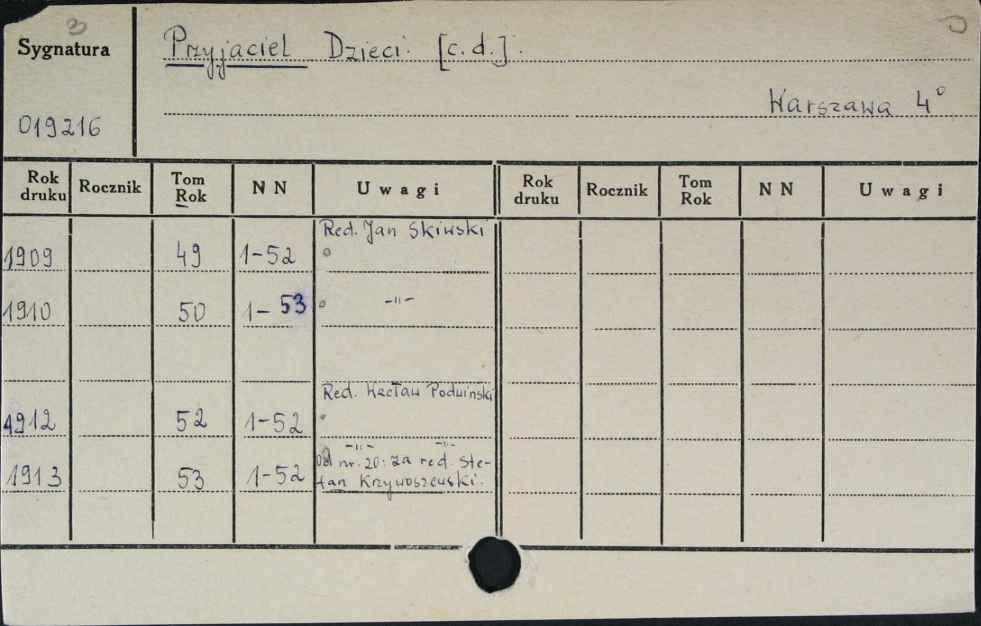 3
Sygnatura
Przyjaciel Dzieci. [c.d.].
Warszawa 4°
019216
Rok druku Rocznik Tom Rok N N Uwagi Rok druku Rocznik Tom Rok N N Uwagi
Red. Jan Skiwski
1909 49 1-52 °
1910 50 1-53 ° -"-
Red. Wacław Podwiński
1912 52 1-52 °
-"- -"-
Od nr. 20: za red. Ste-
1913 53 1-52 fan Krzywoszewski.